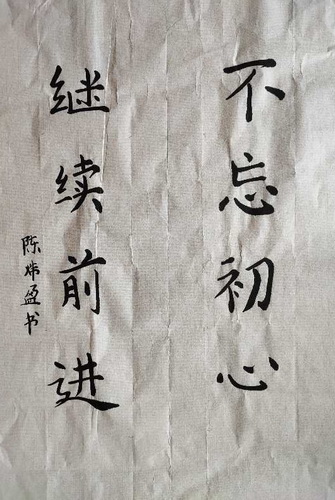 不忘初心
继续前进
陈炜盈书